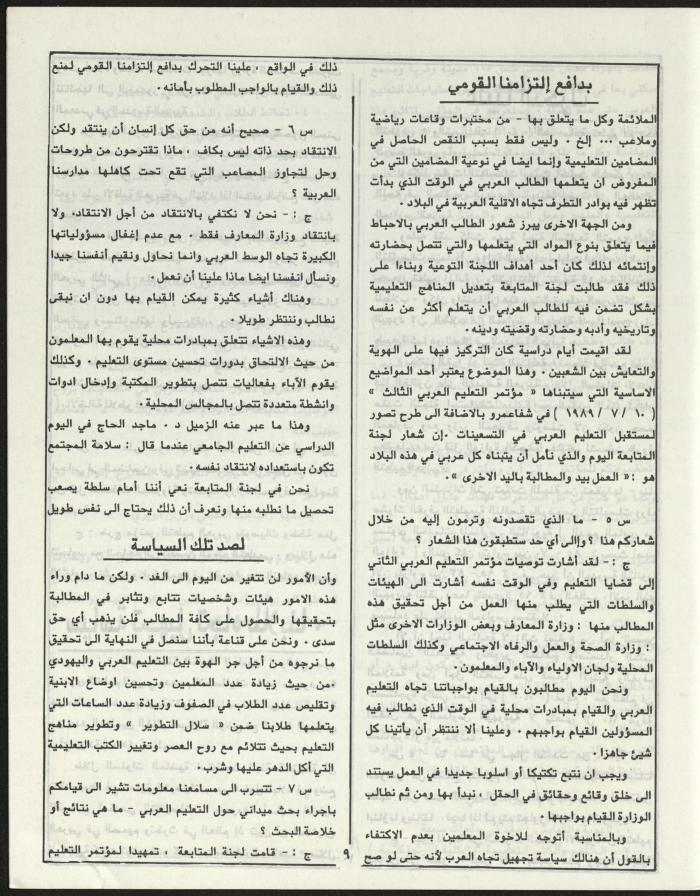 بدافع إلتزامنا القومي
الملائمة وكل ما يتعلق بها - من مختبرات وقاعات رياضية
وملاعب ... إلخ . وليس فقط بسبب النقص الحاصل في
المضامين التعليمية وإنما ايضا في نوعية المضامين التي من
المفروض ان يتعلمها الطالب العربي في الوقت الذي بدأت
تظهر فيه بوادر التطرف تجاه الاقلية العربية في البلاد .
ومن الجهة الاخرى يبرز شعور الطالب العربي بالاحباط
فيما يتعلق بنوع المواد التي يتعلمها والتي تتصل بحضارته
وإنتمائه لذلك كان أحد أهداف اللجنة التوعية وبناءا على
ذلك فقد طالبت لجنة المتابعة بتعديل المناهج التعليمية
بشكل تضمن فيه للطالب العربي أن يتعلم أكثر عن نفسه
وتاريخيه وأدبه وحضارته وقضيته ودينه .
لقد اقيمت أيام دراسية كان التركيز فيها على الهوية
والتعايش بين الشعبين . وهذا الموضوع يعتبر أحد المواضيع
الاساسية التي سيتبناها « مؤتمر التعليم العربي الثالث »
( ١٠ / ٧ / ١٩٨٩ ) في شفاعمرو بالاضافة الى طرح تصور
لمستقبل التعليم العربي في التسعينات . إن شعار لجنة
المتابعة اليوم والذي نأمل أن يتبناه كل عربي في هذه البلاد
هو : « العمل بيد والمطالبة باليد الاخرى » .
س ٥ - ما الذي تقصدونه وترمون إليه من خلال
شعاركم هذا ؟ وإلى أي حد ستطبقون هذا الشعار ؟
ج : - لقد أشارت توصيات مؤتمر التعليم العربي الثاني
إلى قضايا التعليم وفي الوقت نفسه أشارت الى الهيئات
والسلطات التي يطلب منها العمل من أجل تحقيق هذه
المطالب منها : وزارة المعارف وبعض الوزارات الاخرى مثل
: وزارة الصحة والعمل والرفاه الاجتماعي وكذلك السلطات
المحلية ولجان الاولياء والآباء والمعلمون .
ونحن اليوم مطالبون بالقيام بواجباتنا تجاه التعليم
العربي والقيام بمبادرات محلية في الوقت الذي نطالب فيه
المسؤولين القيام بواجبهم . وعلينا ألا ننتظر أن يأتينا كل
شيئ جاهزا .
ويجب ان نتبع تكتيكا أو اسلوبا جديدا في العمل يستند
الى خلق وقائع وحقائق في الحقل ، نبدأ بها ومن ثم نطالب
الوزارة القيام بواجبها .
وبالمناسبة أتوجه للاخوة المعلمين بعدم الاكتفاء
بالقول أن هنالك سياسة تجهيل تجاه العرب لأنه حتى لو صح
ذلك في الواقع ، علينا التحرك بدافع إلتزامنا القومي لمنع
ذلك والقيام بالواجب المطلوب بأمانه .
س ٦ - صحيح أنه من حق كل إنسان أن ينتقد ولكن
الانتقاد بحد ذاته ليس بكاف ، ماذا تقترحون من طروحات
وحل لتجاوز المصاعب التي تقع تحت كاهلها مدارسنا
العربية ؟
ج : - نحن لا نكتفي بالانتقاد من أجل الانتقاد. ولا
بانتقاد وزارة المعارف فقط . مع عدم إغفال مسؤولياتها
الكبيرة تجاه الوسط العربي وانما نحاول ونقيم أنفسنا جيدا
ونسأل انفسنا ايضا ماذا علينا أن نعمل .
وهناك أشياء كثيرة يمكن القيام بها دون ان نبقى
نطالب وننتظر طويلا .
وهذه الاشياء تتعلق بمبادرات محلية يقوم بها المعلمون
من حيث الالتحاق بدورات تحسين مستوى التعليم . وكذلك
يقوم الآباء بفعاليات تتصل بتطوير المكتبة وإدخال ادوات
وانشطة متعددة تتصل بالمجالس المحلية .
وهذا ما عبر عنه الزميل د . ماجد الحاج في اليوم
الدراسي عن التعليم الجامعي عندما قال : سلامة المجتمع
تكون باستعداده لانتقاد نفسه .
نحن في لجنة المتابعة نعي أننا أمام سلطة يصعب
تحصيل ما نطلبه منها ونعرف أن ذلك يحتاج الى نفس طويل
لصد تلك السياسة
وأن الأمور لن تتغير من اليوم الى الغد . ولكن ما دام وراء
هذه الامور هيئات وشخصيات تتابع وتثابر في المطالبة
بتحقيقها والحصول على كافة المطالب فلن يذهب أي حق
سدى . ونحن على قناعة بأننا سنصل في النهاية الى تحقيق
ما نرجوه من أجل جر الهوة بين التعليم العربي واليهودي
. من حيث زيادة عدد المعلمين وتحسين اوضاع الابنية
وتقليص عدد الطلاب في الصفوف وزيادة عدد الساعات التي
يتعلمها طلابنا ضمن « سلال التطوير » وتطوير مناهج
التعليم بحيث تتلائم مع روح العصر وتغيير الكتب التعليمية
التي أكل الدهر عليها وشرب .
س ٧ - تتسرب الى مسامعنا معلومات تشير الى قيامكم
باجراء بحث ميداني حول التعليم العربي - ما هي نتائج أو
خلاصة البحث ؟
ج : - قامت لجنة المتابعة ، تمهيدا لمؤتمر التعليم
٩